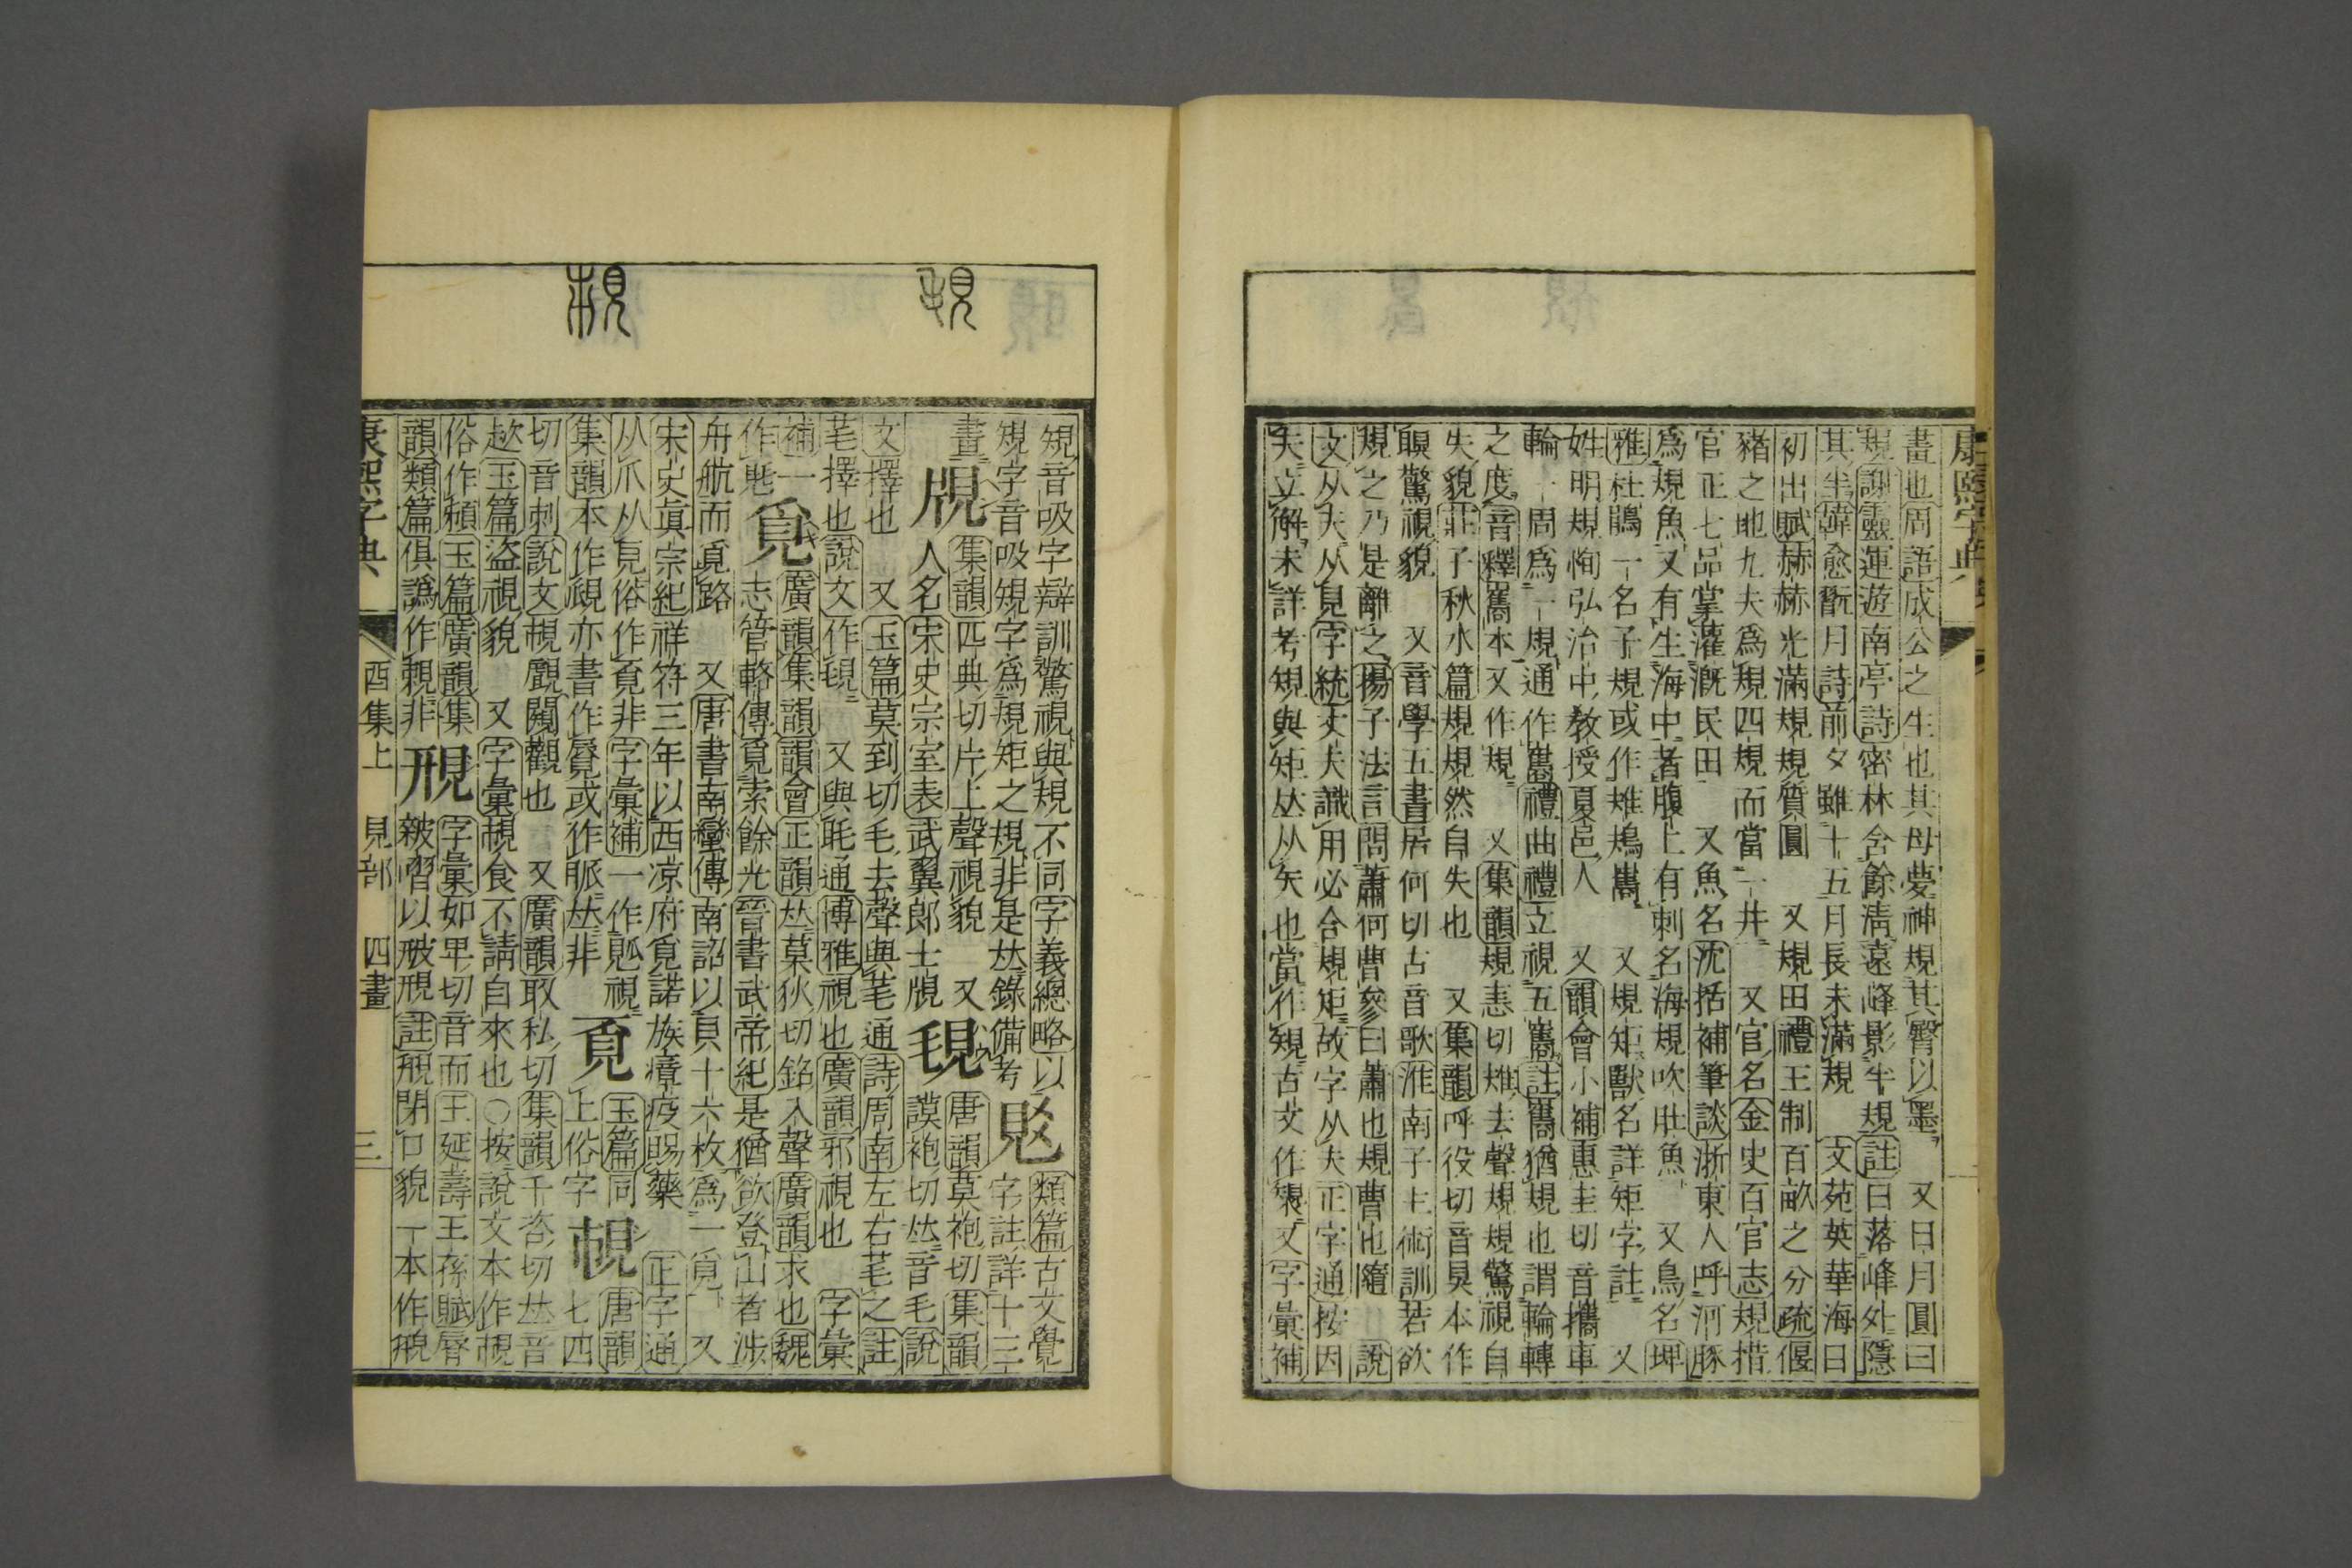 康熙字典
畫也周語成公之生也其母夢神規其臀以墨又日月圓曰
規謝靈運遊南亭詩密林含餘淸遠峰影半規註曰落峰外隱
其半韓愈翫月詩前夕雖十五月長未滿規文苑英華海日
初出賦赫赫光滿規規質圓又規田禮王制百畝之分疏偃
豬之地九夫爲規四規而當一井又官名金史百官志規措
官正七品掌灌漑民田又魚名沈括補筆談浙東人呼河豚
爲規魚又有生海中者腹上有刺名海規吹肚魚又鳥名埤
雅杜鵑一名子規或作雉鳺巂又規矩獸名詳矩字註又
姓明規恂弘治中敎授夏邑人又韻會小補惠圭切音攜車
輪一周爲一規通作巂禮曲禮立視五巂註巂猶規也謂輪轉
之度音釋巂本又作規又集韻規恚切雉去聲規規驚視自
失貌莊子秋水篇規規然自失也又集韻呼役切音狊本作
瞁驚視貌又音學五書居何切古音歌淮南子主術訓若欲
規之乃是離之揚子法言問蕭何曹參曰蕭也規曹也隨說
文从夫从見字統丈夫識用必合規矩故字从夫正字通按因
夫立解未詳考䂓與矩𠀤从矢也當作䂓古文作𧠮又字彙補
䂓音吸字辯訓驚視與規不同字義總略以
䂓字音吸䂓字爲規矩之規非是𠀤錄備考覐類篇古文覺字註詳十三
畫覑集韻匹典切片上聲視貌又
人名宋史宗室表武翼郞士覑覒唐韻莫袍切集韻謨袍切𠀤音毛說
文擇也又玉篇莫到切毛去聲與芼通詩周南左右芼之註
芼擇也說文作覒又與眊通博雅視也廣韻邪視也字彙
補一作㲠覓廣韻集韻韻會正韻𠀤莫狄切銘入聲廣韻求也魏
志管輅傳覓索餘光晉書武帝紀是猶欲登山者涉
舟航而覓路又唐書南蠻傳南詔以貝十六枚爲一覓又
宋史眞宗紀祥符三年以西凉府覓諾族瘴疫賜藥正字通
从爪从見俗作覔非字彙補一作覛視覔玉篇同上俗字覗唐韻七四
集韻本作覛亦書作䁅或作脈𠀤非
切音刺說文覗覰闚觀也又廣韻取私切集韻千咨切𠀤音
趑玉篇盜視貌又字彙覗食不請自來也○按說文本作覗
俗作䫌玉篇廣韻集韻類篇俱譌作覙非𧠍字彙如卑切音而王延壽王孫賦脣
𤿎㗩以𤿎𧠍註𧠍閉口貌一本作覙
康熙字典
酉集上見部四畫
三